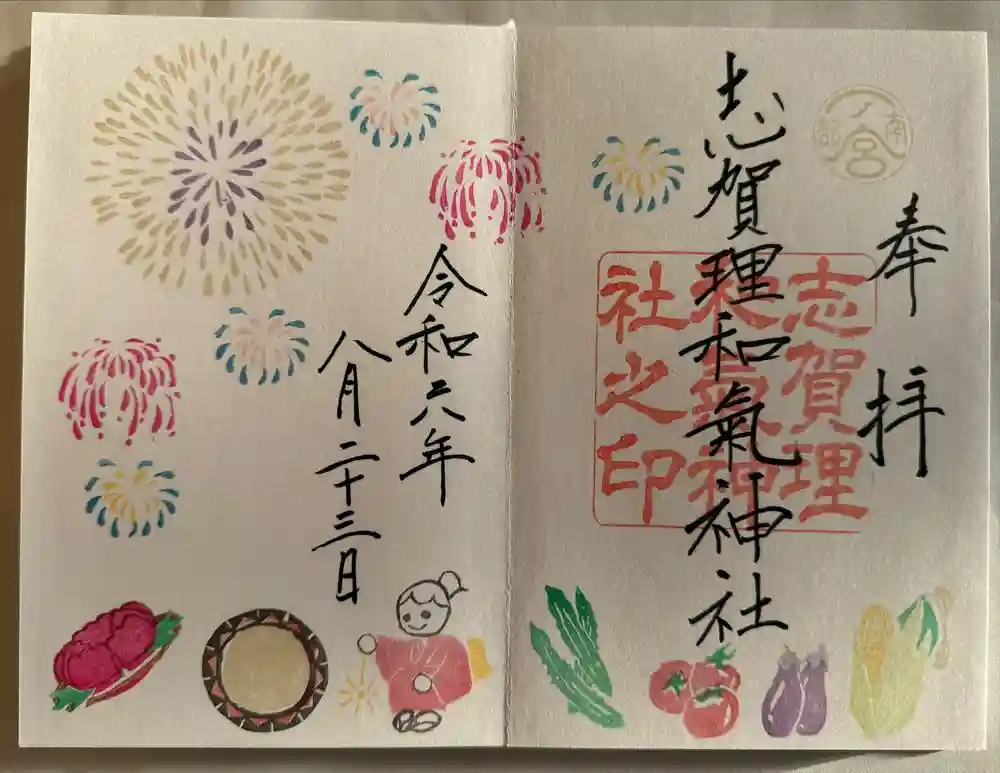 奉拝
志賀理和氣神社
志賀理
和氣神
社之印
南ノ宮都
令和六年
八月二十三日